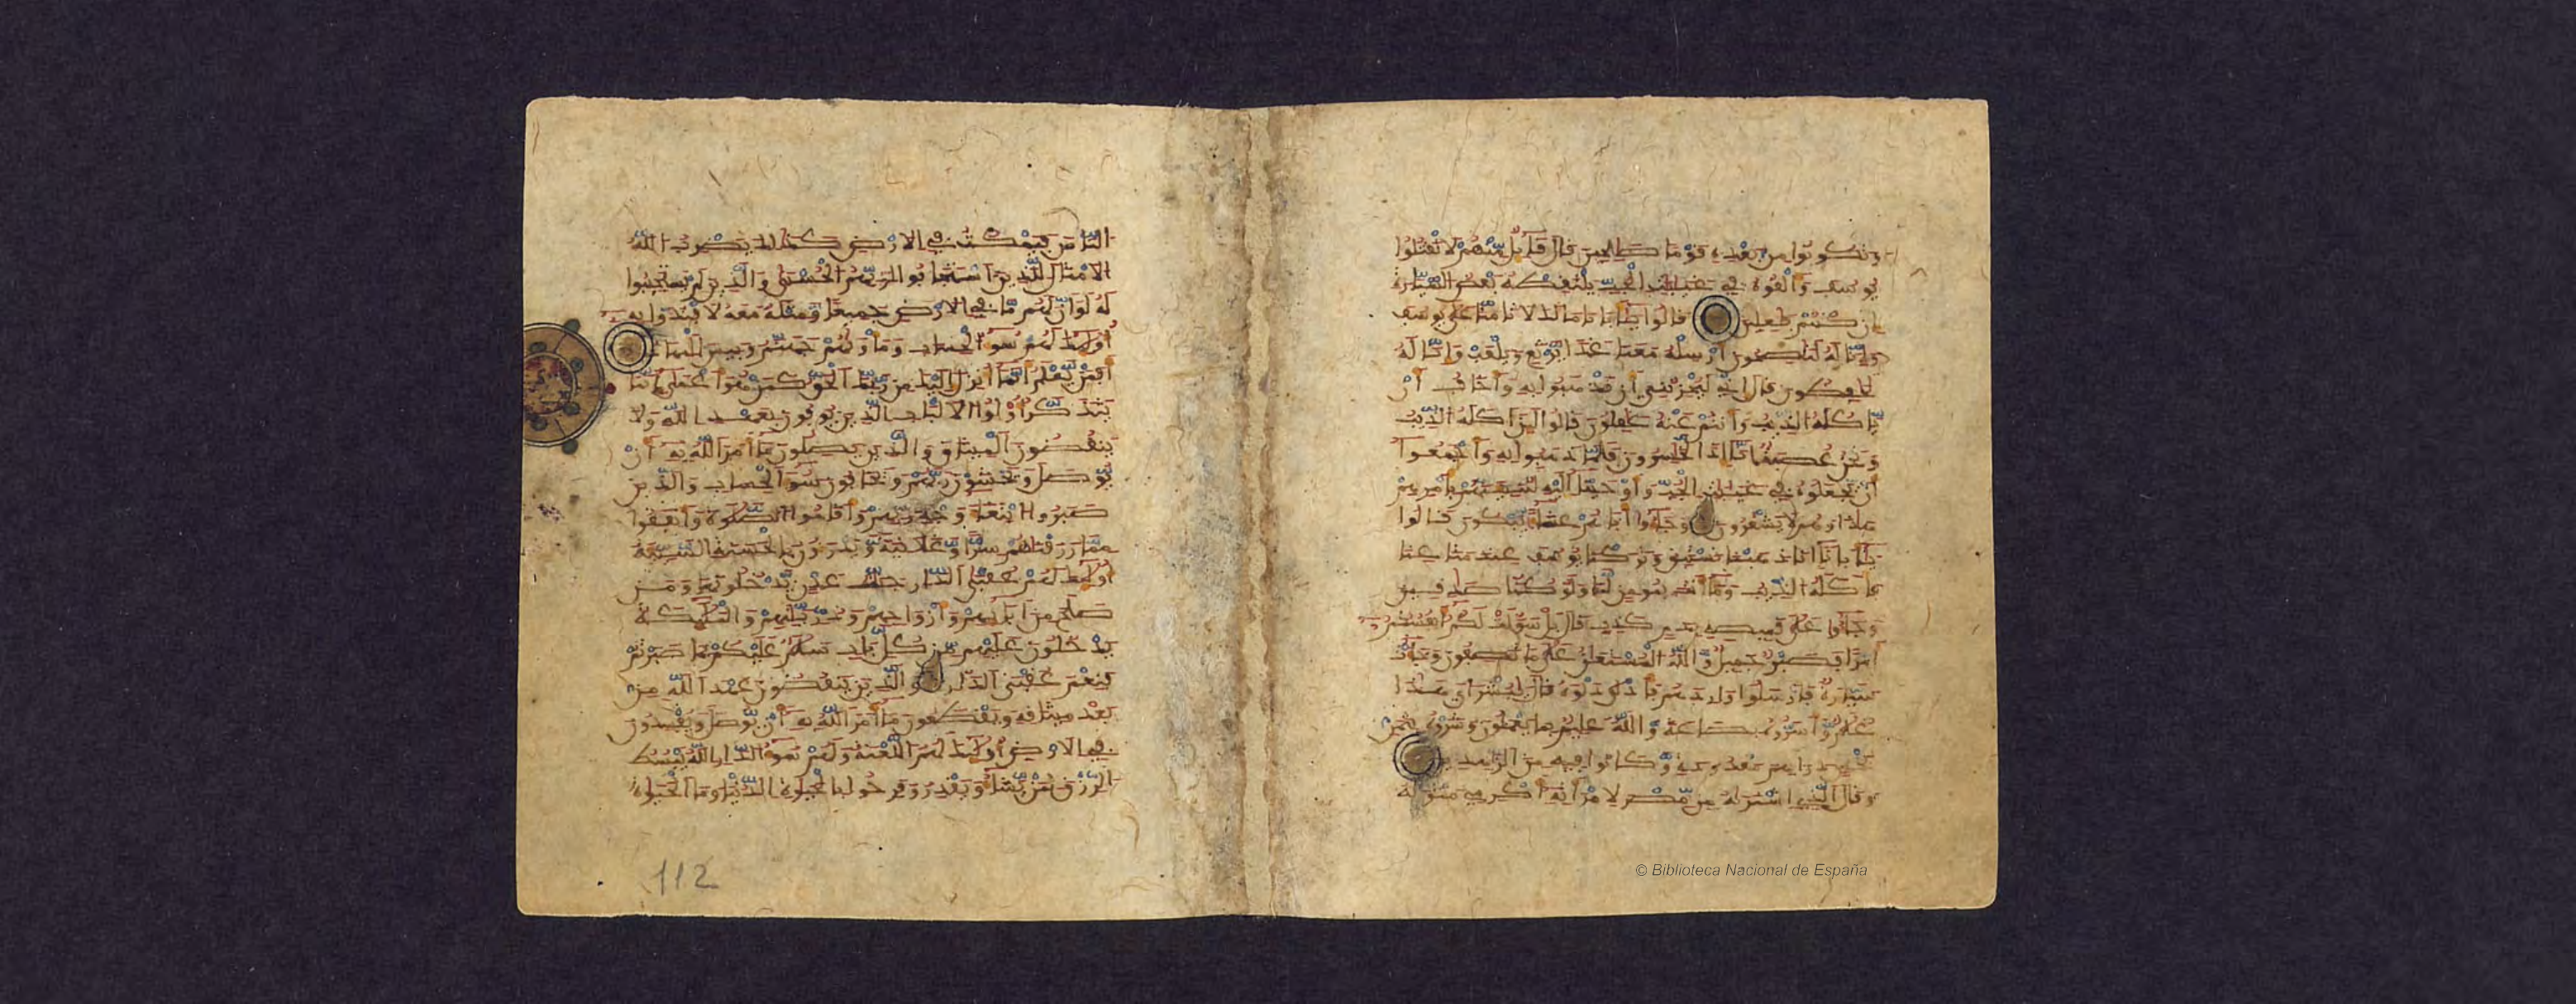 وتكونوا من بعده قوما صلحين قال قآئل منهم لا تقتلوا
يوسف وألقوه في غيابات الجب يلتقطه بعض السيارة
إن كنتم فعلين قالوا يا أبانا ما لك لا تأمنا على يوسف
وإنا له لناصحون أرسله معنا غدا يرتع ويلعب وإنا له
لحافظون قال إني ليحزنني أن تذهبوا به وأخاف أن
يأكله الذيب وأنتم عنه غفلون قالوا لين أكله الذيب
ونحن عصبة إنا إذا لخسرون فلما ذهبوا به وأجمعوا
أن يجعلوه في غيابات الجب وأوحينا إليه لتنبئنهم بأمرهم
هذا وهم لا يشعرون وجآءوا أباهم عشآء يبكون قالوا
يأبانا إنا ذهبنا نستبق وتركنا يوسف عند متاعنا
فأكله الذيب وما أنت بمومن لنا ولو كنا صدقين
وجآءوا على قميصه بدم كذب قال بل سولت لكم أنفسكم
أمرا فصبر جميل والله المستعان على ما تصفون وجآءت
سيارة فأرسلوا واردهم فأدلى دلوه قال يبشراي هذا
غلم وأسروه بضاعة والله عليم بما يعملون وشروه بثمن
بخس دراهم معدودة وكانوا فيه من الزهدين
وقال الذي اشتراه من مصر لامرأته أكرمي مثواه
الناس فيمكث في الارض كذلك يضرب الله
الامثال للذين استجابوا لربهم الحسنى والذين لم يستجيبوا
له لو أن لهم ما في الارض جميعا ومثله معه لافتدوا به
أولئك لهم سوء الحساب ومأويهم جهنم وبيس المهاد
أفمن يعلم أنما أنزل إليك من ربك الحق كمن هو أعمى إنما
يتذكر أولوا الالباب الذين يوفون بعهد الله ولا
ينقضون الميثاق والذين يصلون مآ أمر الله به أن
يوصل ويخشون ربهم ويخافون سوء الحساب والذين
صبروا ابتغآء وجه ربهم وأقاموا الصلوة وأنفقوا
مما رزقناهم سرا وعلانية ويدرءون بالحسنة السيئة
أولئك لهم عقبى الدار جنات عدن يدخلونها ومن
صلح من ابآئهم وأزواجهم وذريتهم والملئكة
يدخلون عليهم من كل باب سلم عليكم بما صبرتم
فنعم عقبى الدار والذين ينقضون عهد الله من
بعد ميثاقه ويقطعون مآ أمر الله به أن يوصل ويفسدون
في الارض أولئك لهم اللعنة ولهم سوء الدار الله يبسط
الرزق لمن يشآء ويقدر وفرحوا بالحيوة الدنيا وما الحيوة
112
© Biblioteca Nacional de España